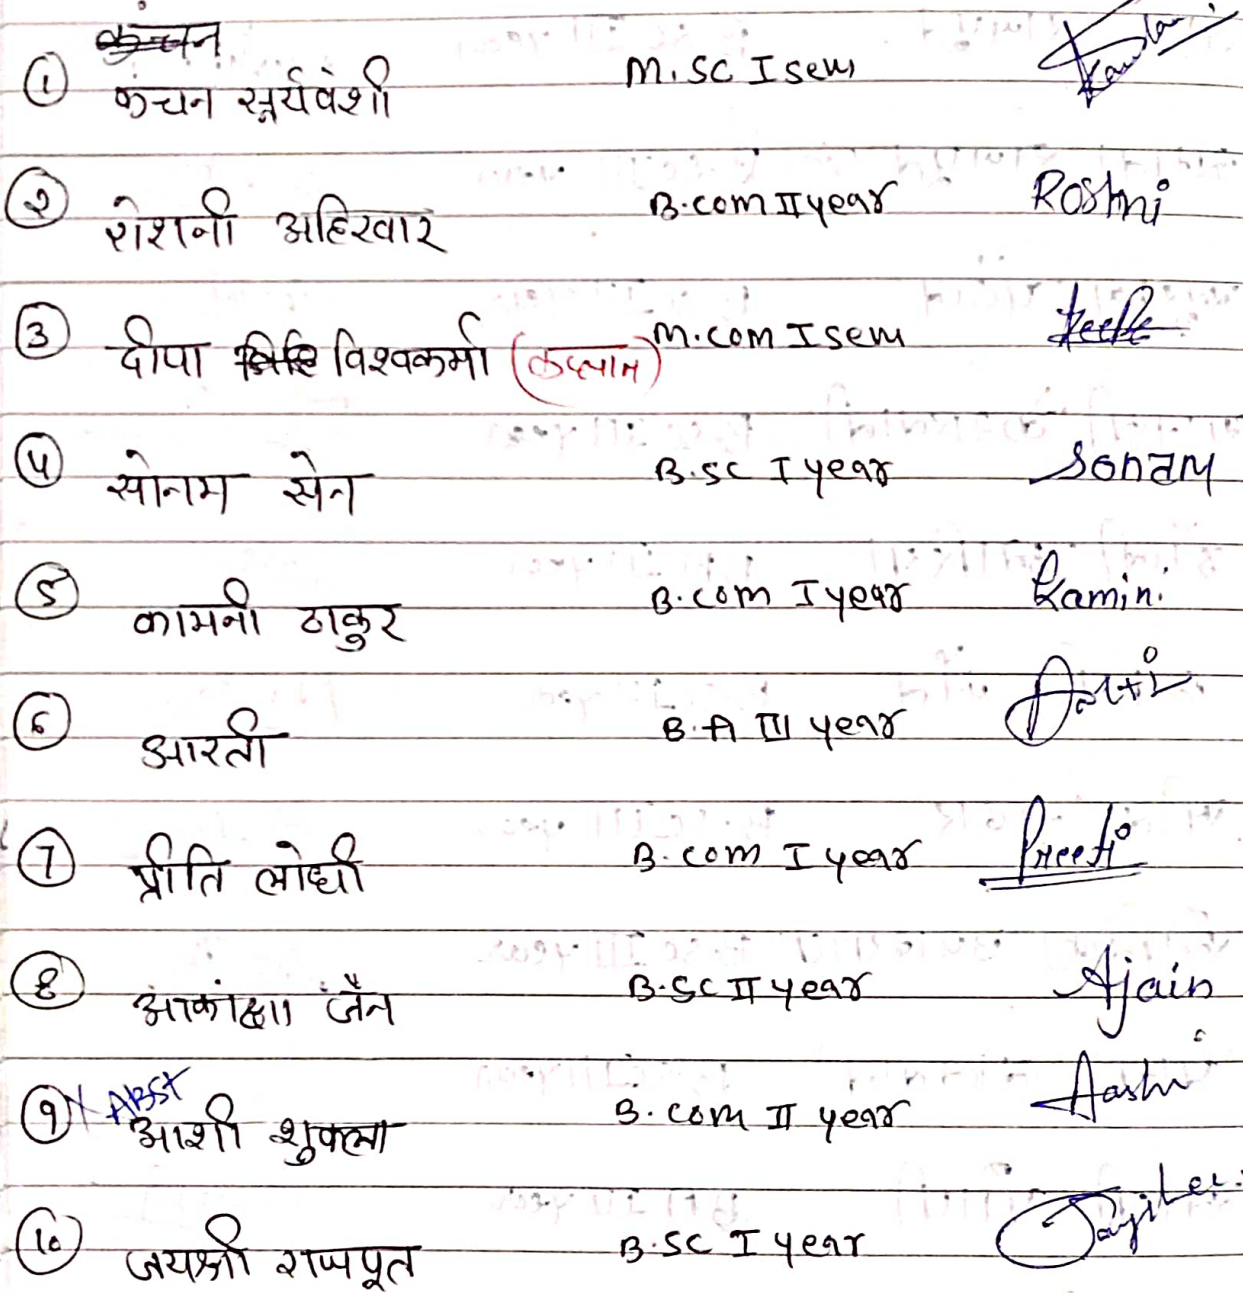 ① कंचन सूर्यवंशी M.SC I sem
② रोशनी अहिरवार B.com II year Roshni
③ दीपा विश्वकर्मा (कप्तान) M.com I sem
④ सोनम सेन B.sc I year Sonam
⑤ कामनी ठाकुर B.com I year Kamini
⑥ आरती B.A III year Aarti
⑦ प्रीति लोधी B.com I year Preeti
⑧ आकांक्षा जैन B.SC II year Ajain
⑨ X ABST आशी शुक्ला B.com II year Aashi
⑩ जयश्री राजपूत B.SC I year